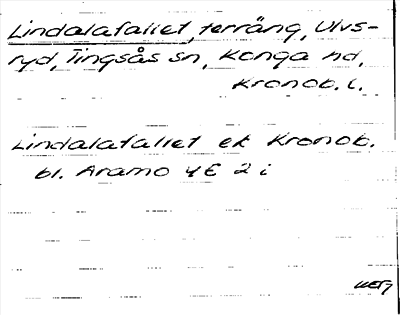 Lindalafallet, terräng, Ulvs-
ryd, Tingsås sn, Konga hd,
Kronob. l.
Lindalafallet ek Kronob.
bl. Aramo 4E 2 i